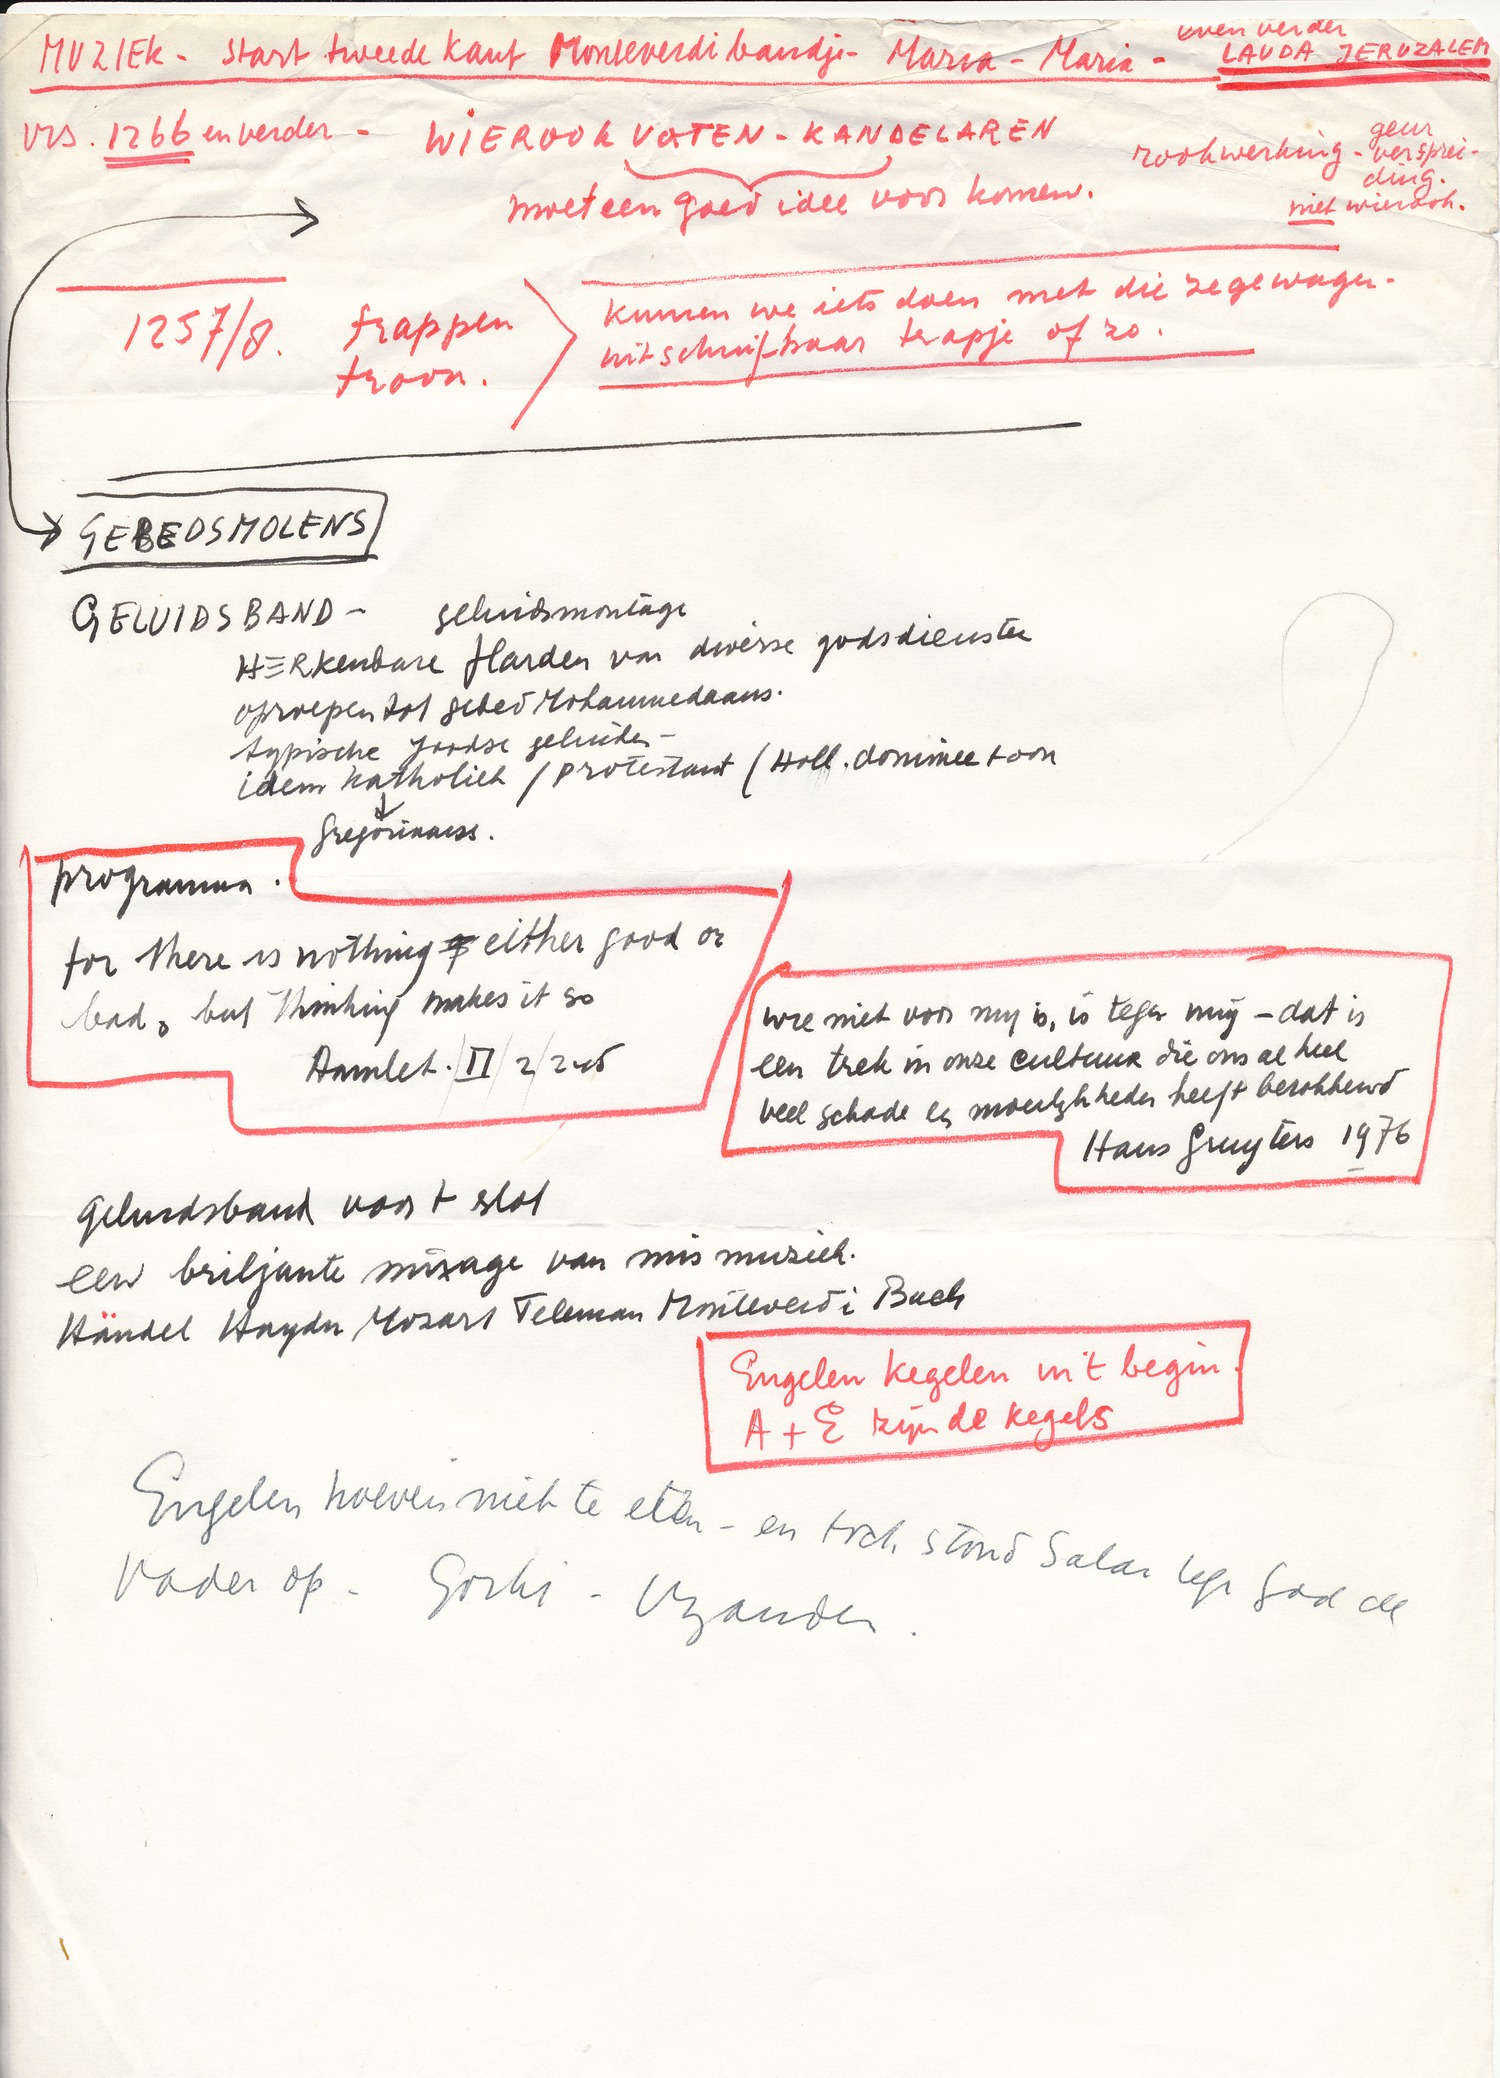 MUZIEK - start tweede kant Monteverdi bandje - Maria - Maria -
even verder
LAUDA JERUZALEM
vrs. 1266 en verder -
WIEROOK VATEN - KANDELAREN
moet een goed idee voor komen.
rookwerking -
geur
versprei-
ding.
niet wierook.
1257/8.
trappen
troon.
kunnen we iets doen met die zegewagen -
uitschuifbaar trapje of zo.
GEBEDSMOLENS
GELUIDSBAND - geluidsmontage
HERKenbare flarden van diverse godsdiensten
oproepen tot gebed Mohammedaans.
typische Joodse geluiden -
idem katholiek / Protestant / Holl. dominee toon
Gregoriaans.
programma.
for there is nothing either good or
bad, but thinking makes it so
Hamlet. II / 2 /
wie niet voor mij is, is tegen mij - dat is
een trek in onze cultuur die ons al heel
veel schade en moeilijkheden heeft berokkend
Hans Gruyters 1976
geluidsband voor 't slot
een briljante mixage van mis muziek.
Händel Haydn Mozart Teleman Monteverdi Bach
Engelen kegelen uit begin.
A + E zijn de kegels
Engelen hoeven niet te eten - en toch stond Satan tegen God de
Vader op - Gorki - Vyanden.